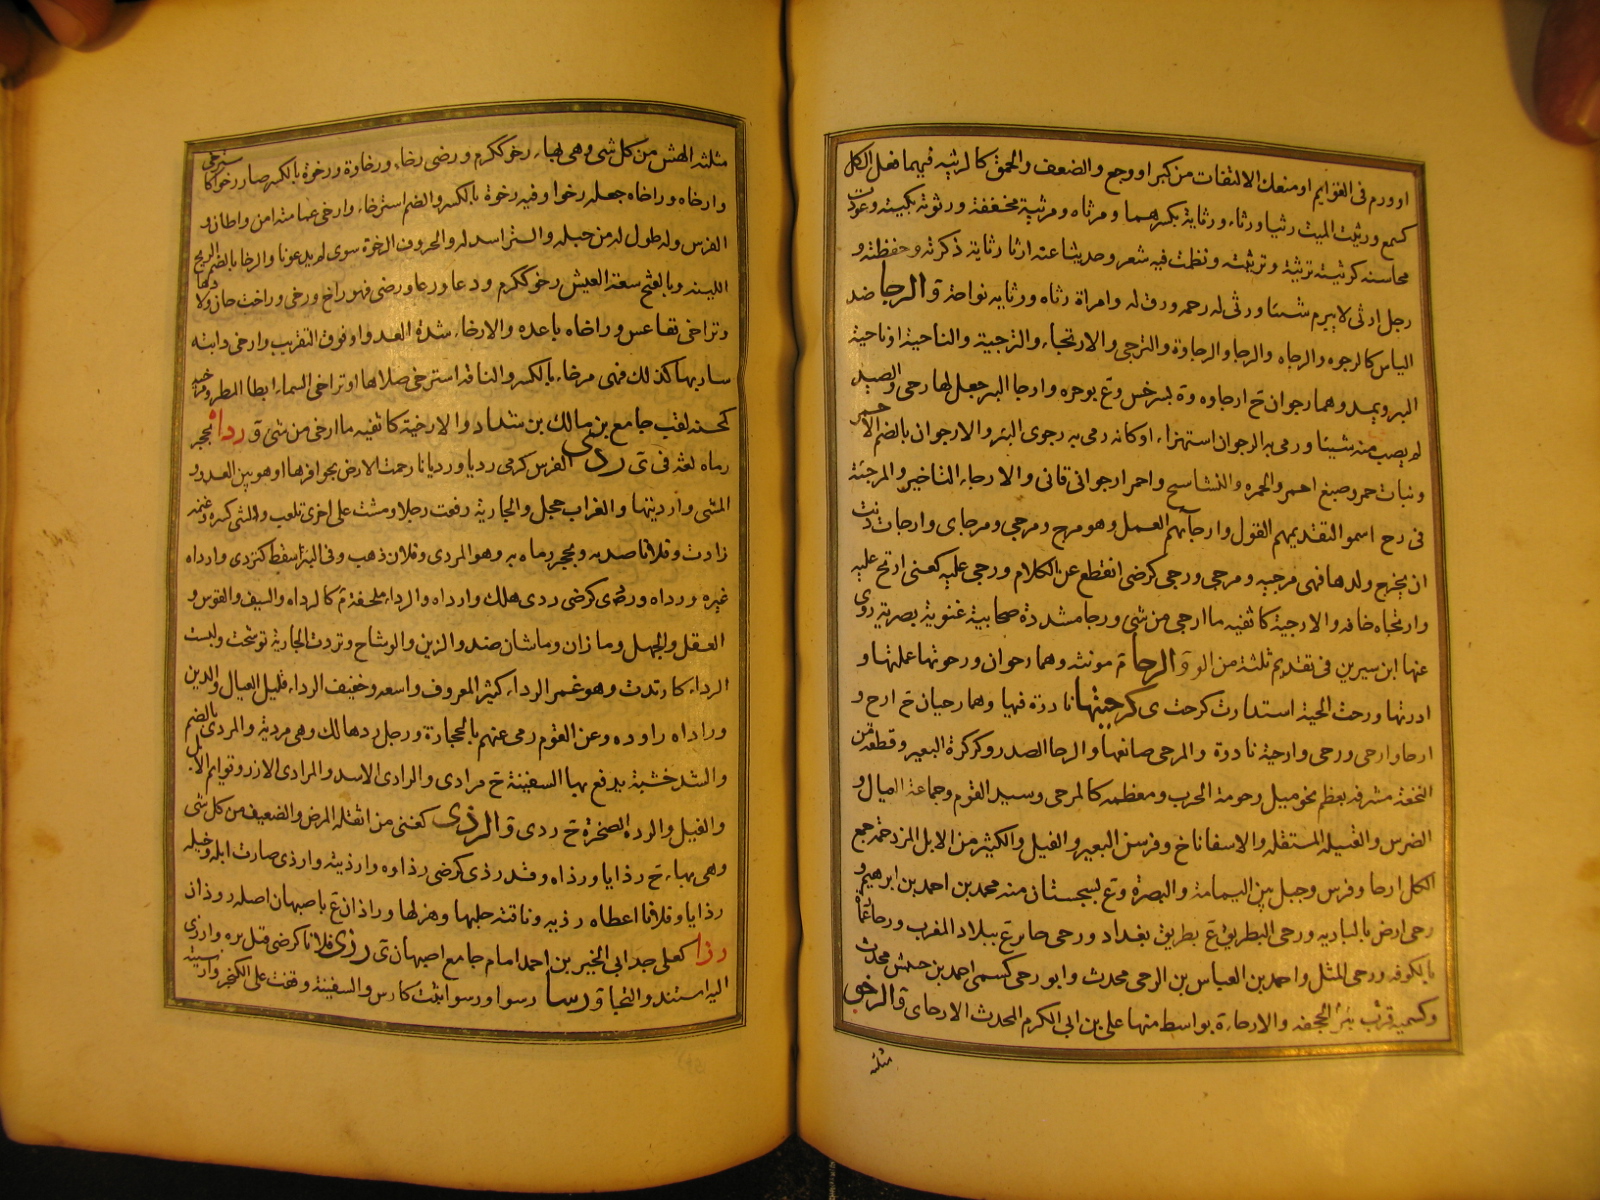 او ورم فى القوايم او منعك الالتفات من كبر او وجع والضعف والحمق كالرثيه فيهما فعل الكل
كسمع ورثيت الميت رثيا ورثاء ورثاية بكسرهما ومرثاه ومرثية مخففة ورثوته بكيته وعددت
محاسنه كرثيته ترثية وترثيته ونظمت فيه شعر وحديثا عنه ارثا رثاية ذكرته وحفظته و
رجل ارثى لا يبرم شيئا ورثى له رحمه ورق له وامراة رثاه ورثايه نواحة و الرجا ضد
الياس كالرجوه والرجاه والرجا والرجاوة والترجى والارتجاء والترجية والناحية او ناحية
البر ويمد وهما رجوان ج ارجاوه وة بسرخس وع بوجره وارجا البر جعل لها رجى والصيد
لم يصب منه شيئا ورمى به الرجوان استهزاء اوكانه رمى به رجوى البئر والارجوان بالضم الاحمر
ونبات حمر وصبغ احمر والحمره والنشاستج واحمر ارجوانى قانى والارجاء التاخير والمرجئة
فى رج ا سموا لتقديمهم القول وارجآئهم العمل وهو مرج ومرجى ومرجاى وارجات دنت
ان يخرج ولدها فهى مرجيه ومرجى ورجى كرضى انقطع عن الكلام ورجى عليه كعنى ارتج عليه
وارتجاه خافه والارجية كاثفيه ما ارجى من شى ورجا مشددة صحابية غنوية بصرية روى
عنها ابن سيرين فى تقديم ثلثة من الو و الرحا م مونثه وهما رحوان ورحوتها عملتها و
ادرتها ورحت الحية استدارت كرحت ى كرحيتها نادرة فيها وهما رحيان ج ارح و
ارحا وارحى ورحى وارحية نادرة والمرحى صانعها والرحا الصدر وكركرة البعير وقطعة من
النجفة مشرفه بعظم نحو ميل وحومة الحرب ومعظمه كالمرحى وسيد القوم وجماعة العيال و
الضرس والقبيله المستقله والاسفاناخ وفرسن البعير والفيل والكثير من الابل المزدحمه جمع
الكل ارحا وفرس وجبل بين اليمامة والبصرة وع بسجستان منه محمد بن احمد بن ابرهيم و
رحى ارض بالباديه ورحى البطريق ع بطريق بغداد ورحى جابر ع ببلاد المغرب ورحا عمارة
بالكوفه ورحى المثل واحمد بن العباس بن الرحى محدث وابو رحى كسمى احمد بن خنبش محدث
وكسميه قرب بئر الجحفه والارحاء ة بواسط منها على بن ابى الكرم المحدث الارحاى و الرخو
مثلثه
مثلثه الهش من كل شى وهى بهاء رخو ككرم ورضى رخاء ورخاوة ورخوة بالكسر صار رخوا كاسترخى
وارخاه وراخاه جعله رخوا وفيه رخوة بالكسر والضم استرخاء وارخى عمامته امن واطان و
الفرس وله طول له من حبله والستر اسدله والحروف الرخوة سوى لم يرعونا والرخا بالضم الريح
اللينه وبالفتح سعة العيش رخو ككرم ودعا ورعا ورضى فهو راخ ورخى وراخت حان ولادها
وتراخى تقاعس وراخاه باعده والارخاء شدة العدو او فوق التقريب وارخى دابته
سار بها كذلك فهى مرخاء بالكسر والناقه استرخى صلاها او تراخى السماء ابطا المطر ومرخيه
كمحسنه لقب جامع بن مالك بن شداد والارخية كاثفيه ما ارخى من شى و رداه بحجر
رماه لغة فى ى ردى الفرس كرمى رديا ورديانا رجمت الارض بحوافرها او هو بين العدو و
المشى وارديتها والغراب حجل والجارية رفعت رجلا ومشت على اخرى تلعب والشى كسره وغنمه
زادت وفلانا صدمه وبحجر رماه به وهو المردى وفلان ذهب وفى البئر سقط كتردى وارداه
غيره ورداه وردى كرضى ردى هلك وارداه والرداء ملحفة م كالرداه والسيف والقوس و
العقل والجهل وما زان وما شان ضد والزين والوشاح وتردت الجارية توشحت ولبست
الرداء كارتدت وهو غمر الرداء كثير المعروف واسعه وخفيف الرداء قليل العيال والدين
وراداه راوده وعن القوم رمى عنهم بالحجارة ورجل رد هالك وهى مردية والمردى بالضم
والشد خشبة يدفع بها السفينة ج مرادى والرادى الاسد والمرادى الازر وقوايم الابل
والفيل والرده الصخرة ج ردى و الرذى كغنى من اثقله المرض والضعيف من كل شى
وهى بهاء ج رذايا ورذاه وقد رذى كرضى رذاوه وارذيته وارذى صارت ابله وخيله
رذايا وفلانا اعطاه رذيه وناقته خلها وهزلها وراذان ع باصبهان اصله روذان
رزا كعلى جد ابى الخير بن احمد امام جامع اصبهان ى رزى فلانا كرضى قبل بره وارزى
اليه استند والتجا و رسا رسوا ورسوا ثبت كارس والسفينة وقفت على الانجر وارسيته